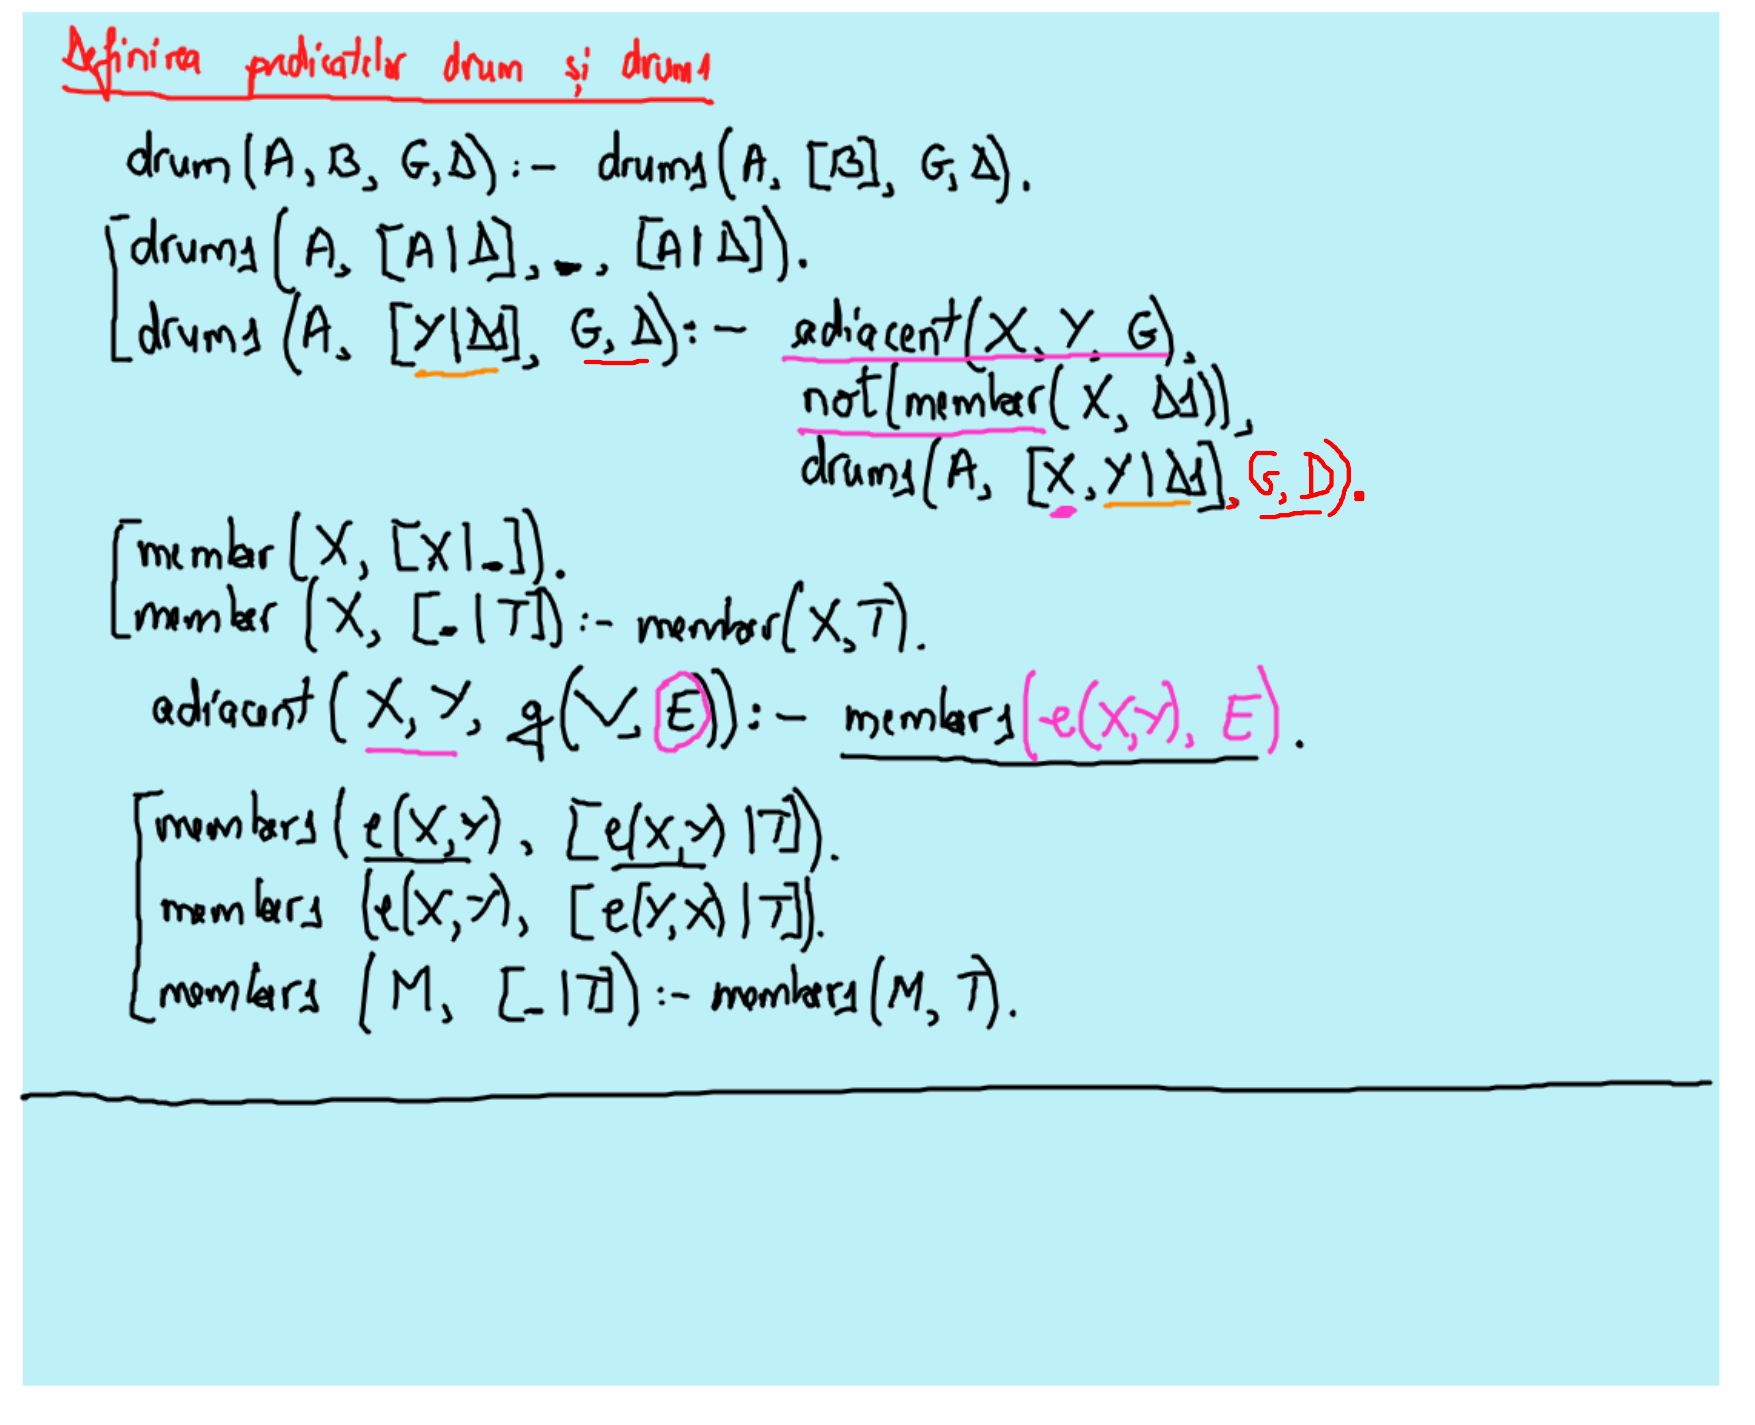 Definirea predicatelor drum și drum1
drum(A, B, G, D) :- drum1(A, [B], G, D).
drum1(A, [A|D], _, [A|D]).
drum1(A, [Y|D1], G, D) :- adiacent(X, Y, G),
not(member(X, D1)),
drum1(A, [X, Y|D1], G, D).
member(X, [X|_]).
member(X, [_|T]) :- member(X, T).
adiacent(X, Y, g(V, E)) :- member1(e(X,Y), E).
member1(e(X,Y), [e(X,Y)|T]).
member1(e(X,Y), [e(Y,X)|T]).
member1(M, [_|T]) :- member1(M, T).